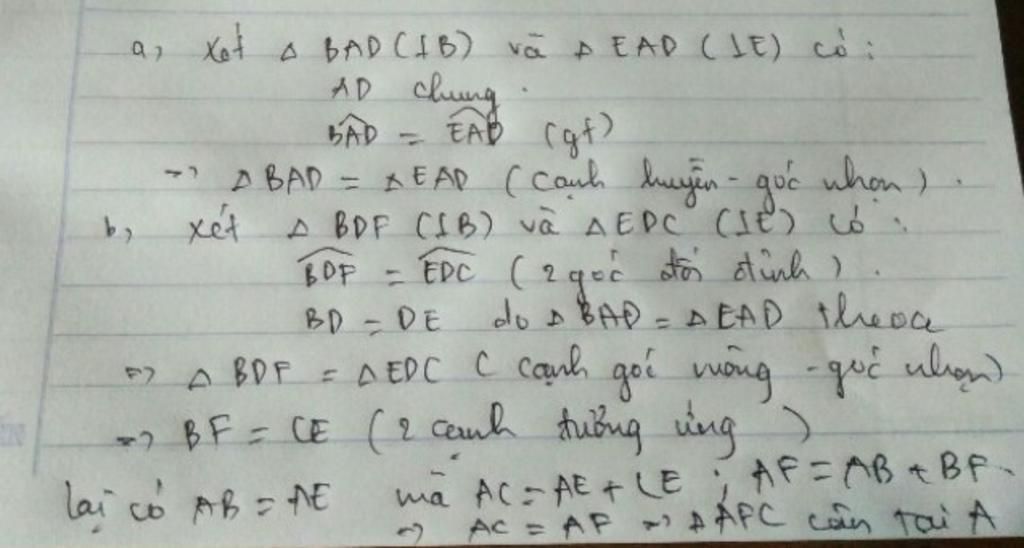 a, xét Δ BAD (⊥B) và Δ EAD (⊥E) có :
AD chung.
∠BAD = ∠EAD (gt)
=> Δ BAD = Δ EAD (cạnh huyền - góc nhọn).
b, xét Δ BDF (⊥B) và Δ EDC (⊥E) có :
∠BDF = ∠EDC (2 góc đối đỉnh).
BD = DE do Δ BAD = Δ EAD theo a
=> Δ BDF = Δ EDC ( cạnh góc vuông - góc nhọn)
=> BF = CE (2 cạnh tương ứng)
lại có AB = AE mà AC = AE + CE ; AF = AB + BF.
=> AC = AF => Δ AFC cân tại A